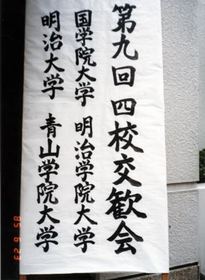 第九回 四校交歓会
国学院大学 明治学院大学
明治大学 青山学院大学